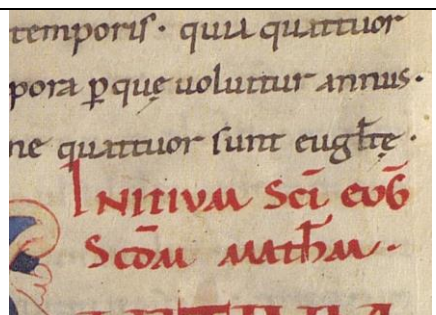 temporis· quia quattuor
pora p̱ quę uoluitur annus·
ne quattuor sunt euglt̅ę·
INITIUM SCI̅ EUG̅
SCDM̅ MATH̅M·